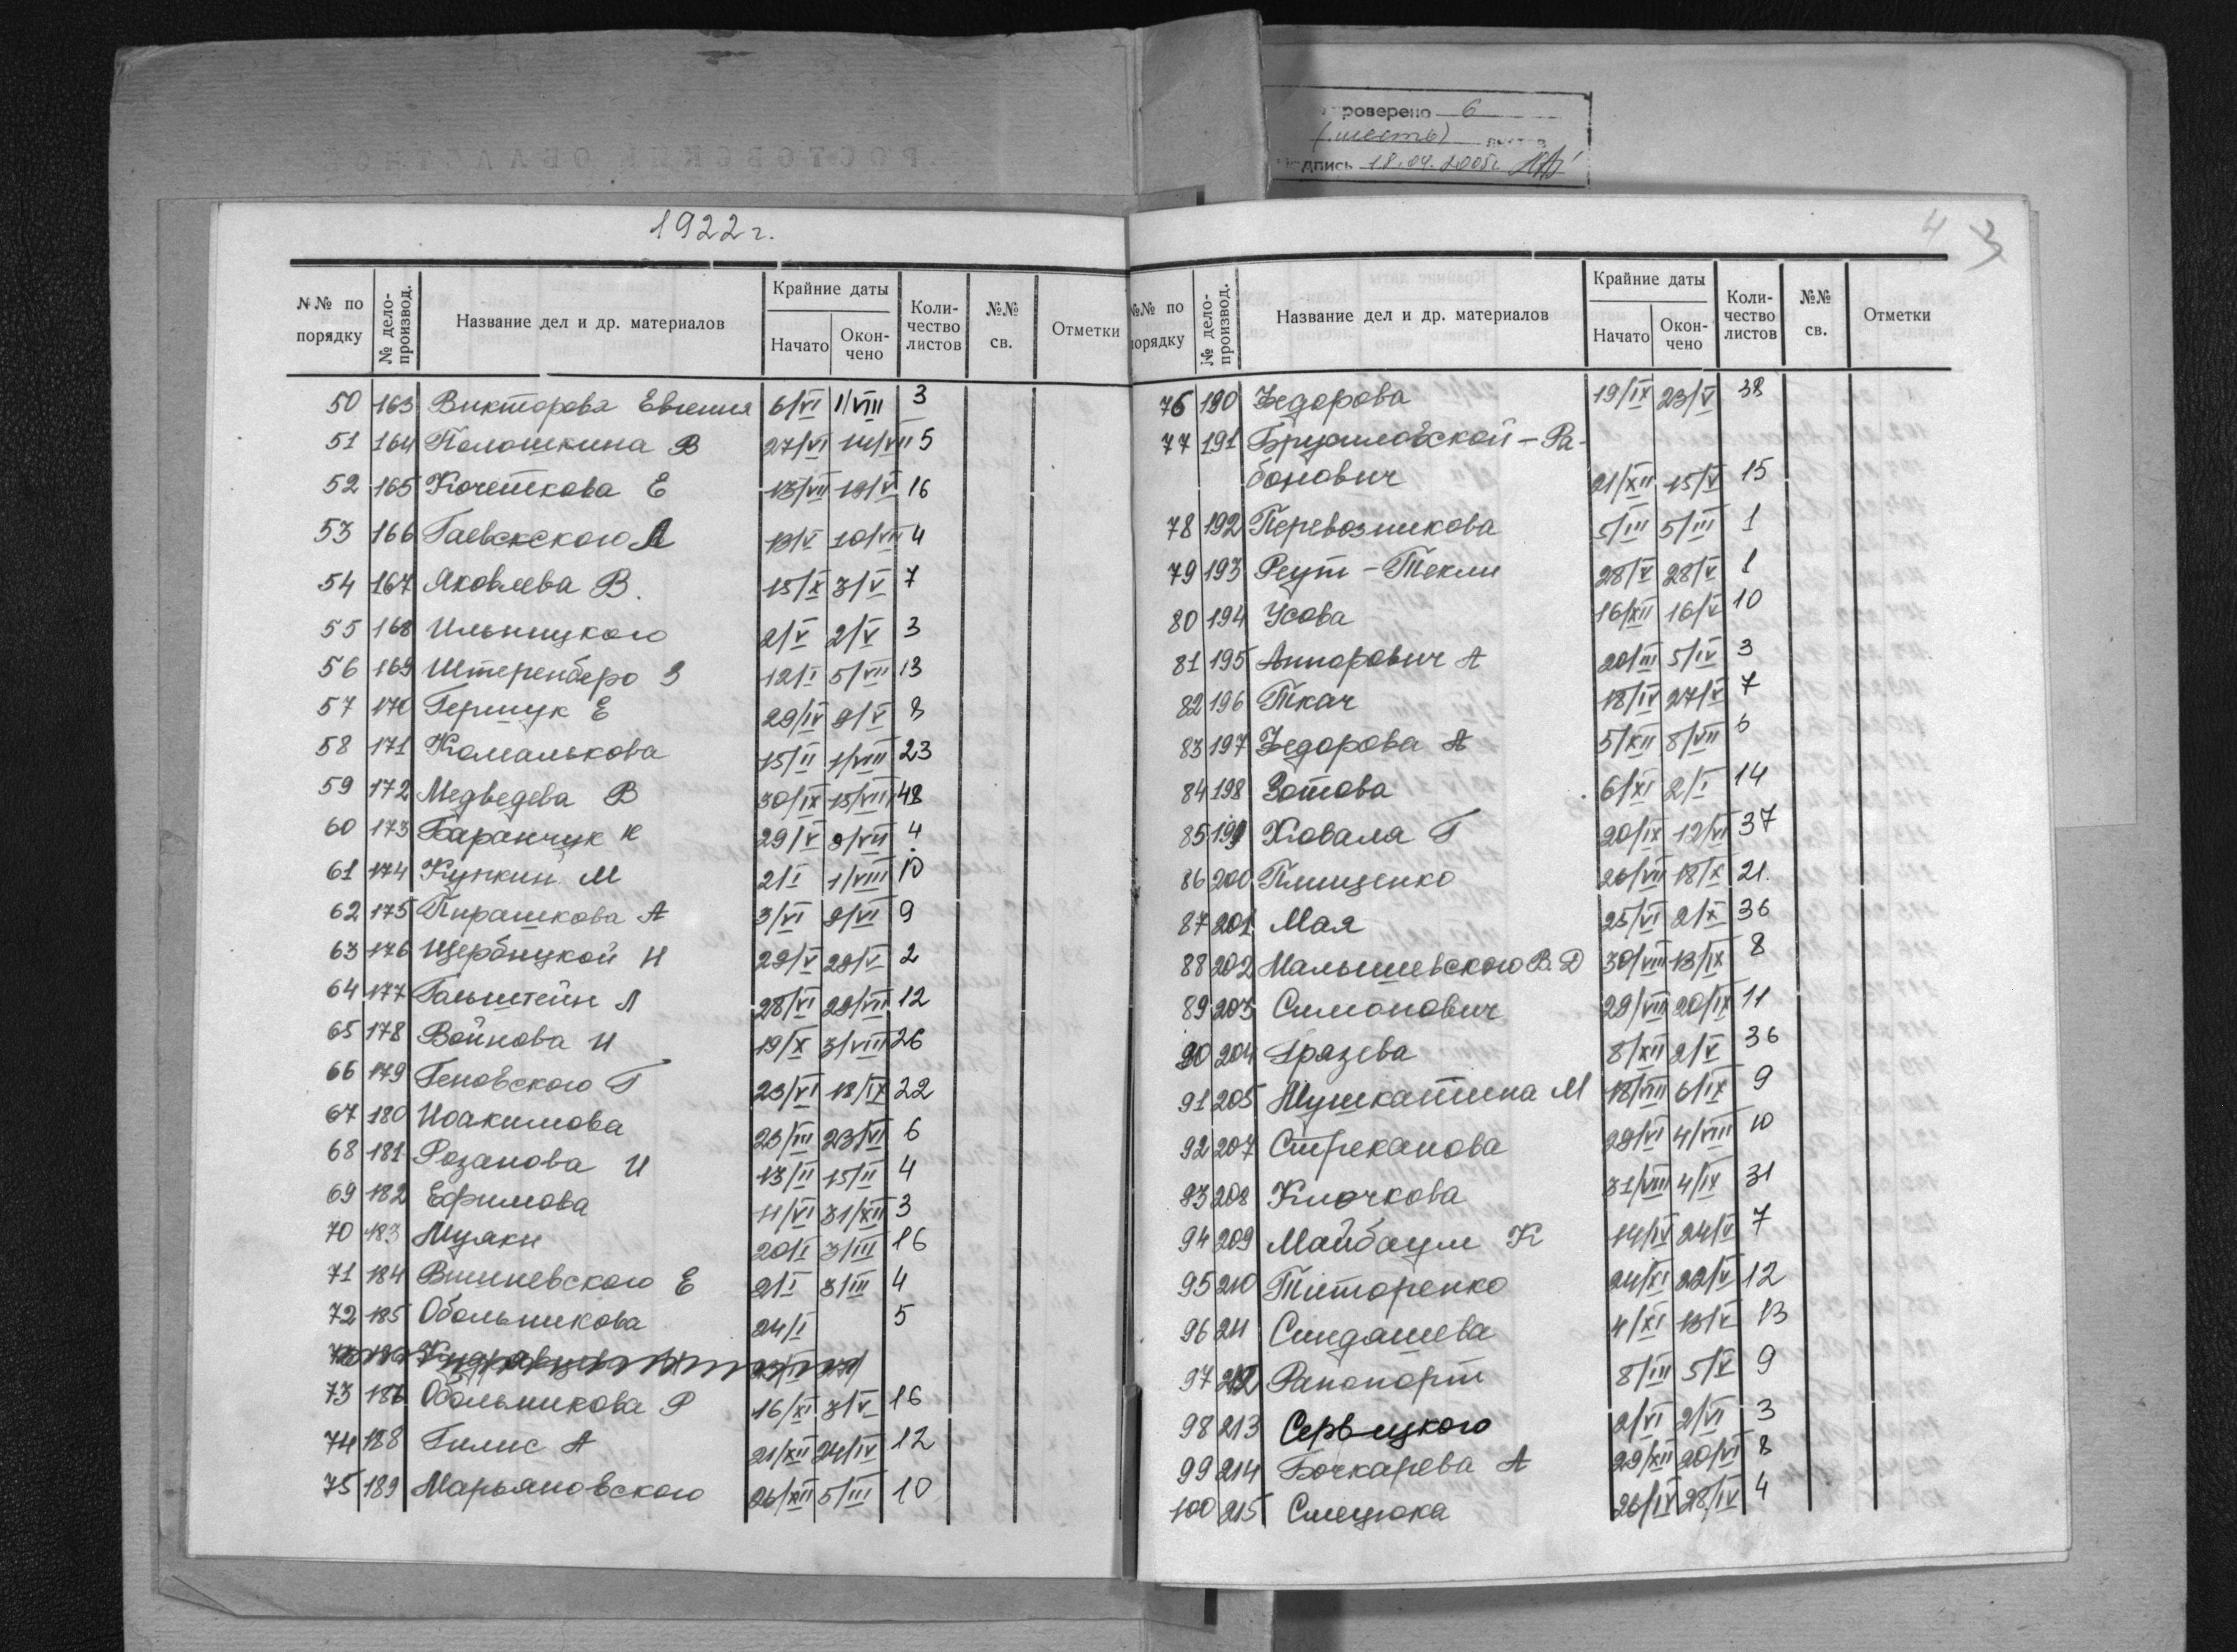 РОСТОВСК ОБЛАСТНОЕ
роверено 6
(шесть)
дпись 18.04.2005г.
1922 г.
4 3
№№ по порядку № дело-производ. Название дел и др. материалов Крайние даты Начато Окон-чено Коли-чество листов №№ св. Отметки
50 163 Викторова Евгения 6/VI 1/VIII 3
51 164 Полошкина В 27/VI 14/VII 5
52 165 Кочеткова Е 13/VII 19/V 16
53 166 Гаевскского А 13/V 10/VII 4
54 167 Яковлева В. 15/X 3/V 7
55 168 Ильницкого 2/V 2/V 3
56 169 Штеренберо З 12/I 5/VII 13
57 170 Гершук Е 29/IV 9/V 8
58 171 Комалькова 15/II 1/VIII 23
59 172 Медведева В 30/IX 15/VII 48
60 173 Баранчук К 29/V 9/VII 4
61 174 Кункин М 2/I 1/VIII 10
62 175 Пирашкова А 3/VI 9/VI 9
63 176 Щербицкой Н 29/V 29/V 2
64 177 Гальштейн Л 28/VI 29/VII 12
65 178 Войнова И 19/X 3/VIII 26
66 179 Геновского Г 23/VI 18/IX 22
67 180 Иоакимова 23/III 23/VI 6
68 181 Розанова И 13/II 15/II 4
69 182 Ефимова 11/VI 31/XII 3
70 183 Муяки 20/I 3/III 16
71 184 Вишневского Е 2/I 3/III 4
72 185 Обольникова 24/I 5
73 186 Обольникова Р 16/XI 3/V 16
74 188 Гилис А 21/XII 24/IV 12
75 189 Марьяновского 26/XII 5/III 10
№№ по порядку № дело-производ. Название дел и др. материалов Крайние даты Начато Окон-чено Коли-чество листов №№ св. Отметки
76 190 Федорова 19/IX 23/V 38
77 191 Брусиловской - Ра-
бонович 21/XII 15/V 15
78 192 Перевозникова 5/III 5/III 1
79 193 Реут - Текли 28/V 28/V 1
80 194 Усова 16/XII 16/V 10
81 195 Аннорович А 20/III 5/IV 3
82 196 Ткач 18/IV 27/V 7
83 197 Федорова А 5/XII 8/VII 6
84 198 Зотова 6/XI 2/I 14
85 199 Коваля Г 20/IX 12/VI 37
86 200 Плищенко 26/VII 18/X 21.
87 201 Мая 25/VI 2/X 36
88 202 Малышевского В. Д 30/VIII 13/IX 8
89 203 Симонович 29/VIII 20/IX 11
90 204 Грязева 8/XII 2/V 36
91 205 Мушкатина М 18/VIII 6/IX 9
92 207 Стреканова 29/VI 4/VIII 10
93 208 Клочкова 31/VIII 4/IX 31
94 209 Майбаум К 14/IV 24/V 7
95 210 Титоренко 24/XI 22/V 12
96 211 Синдяшева 4/XI 13/V 13
97 212 Рапопорт 8/III 5/V 9
98 213 Сервицкого 2/VI 2/VI 3
99 214 Бочкарева А 29/XII 20/VI 8
100 215 Смецюка 26/IV 28/IV 4